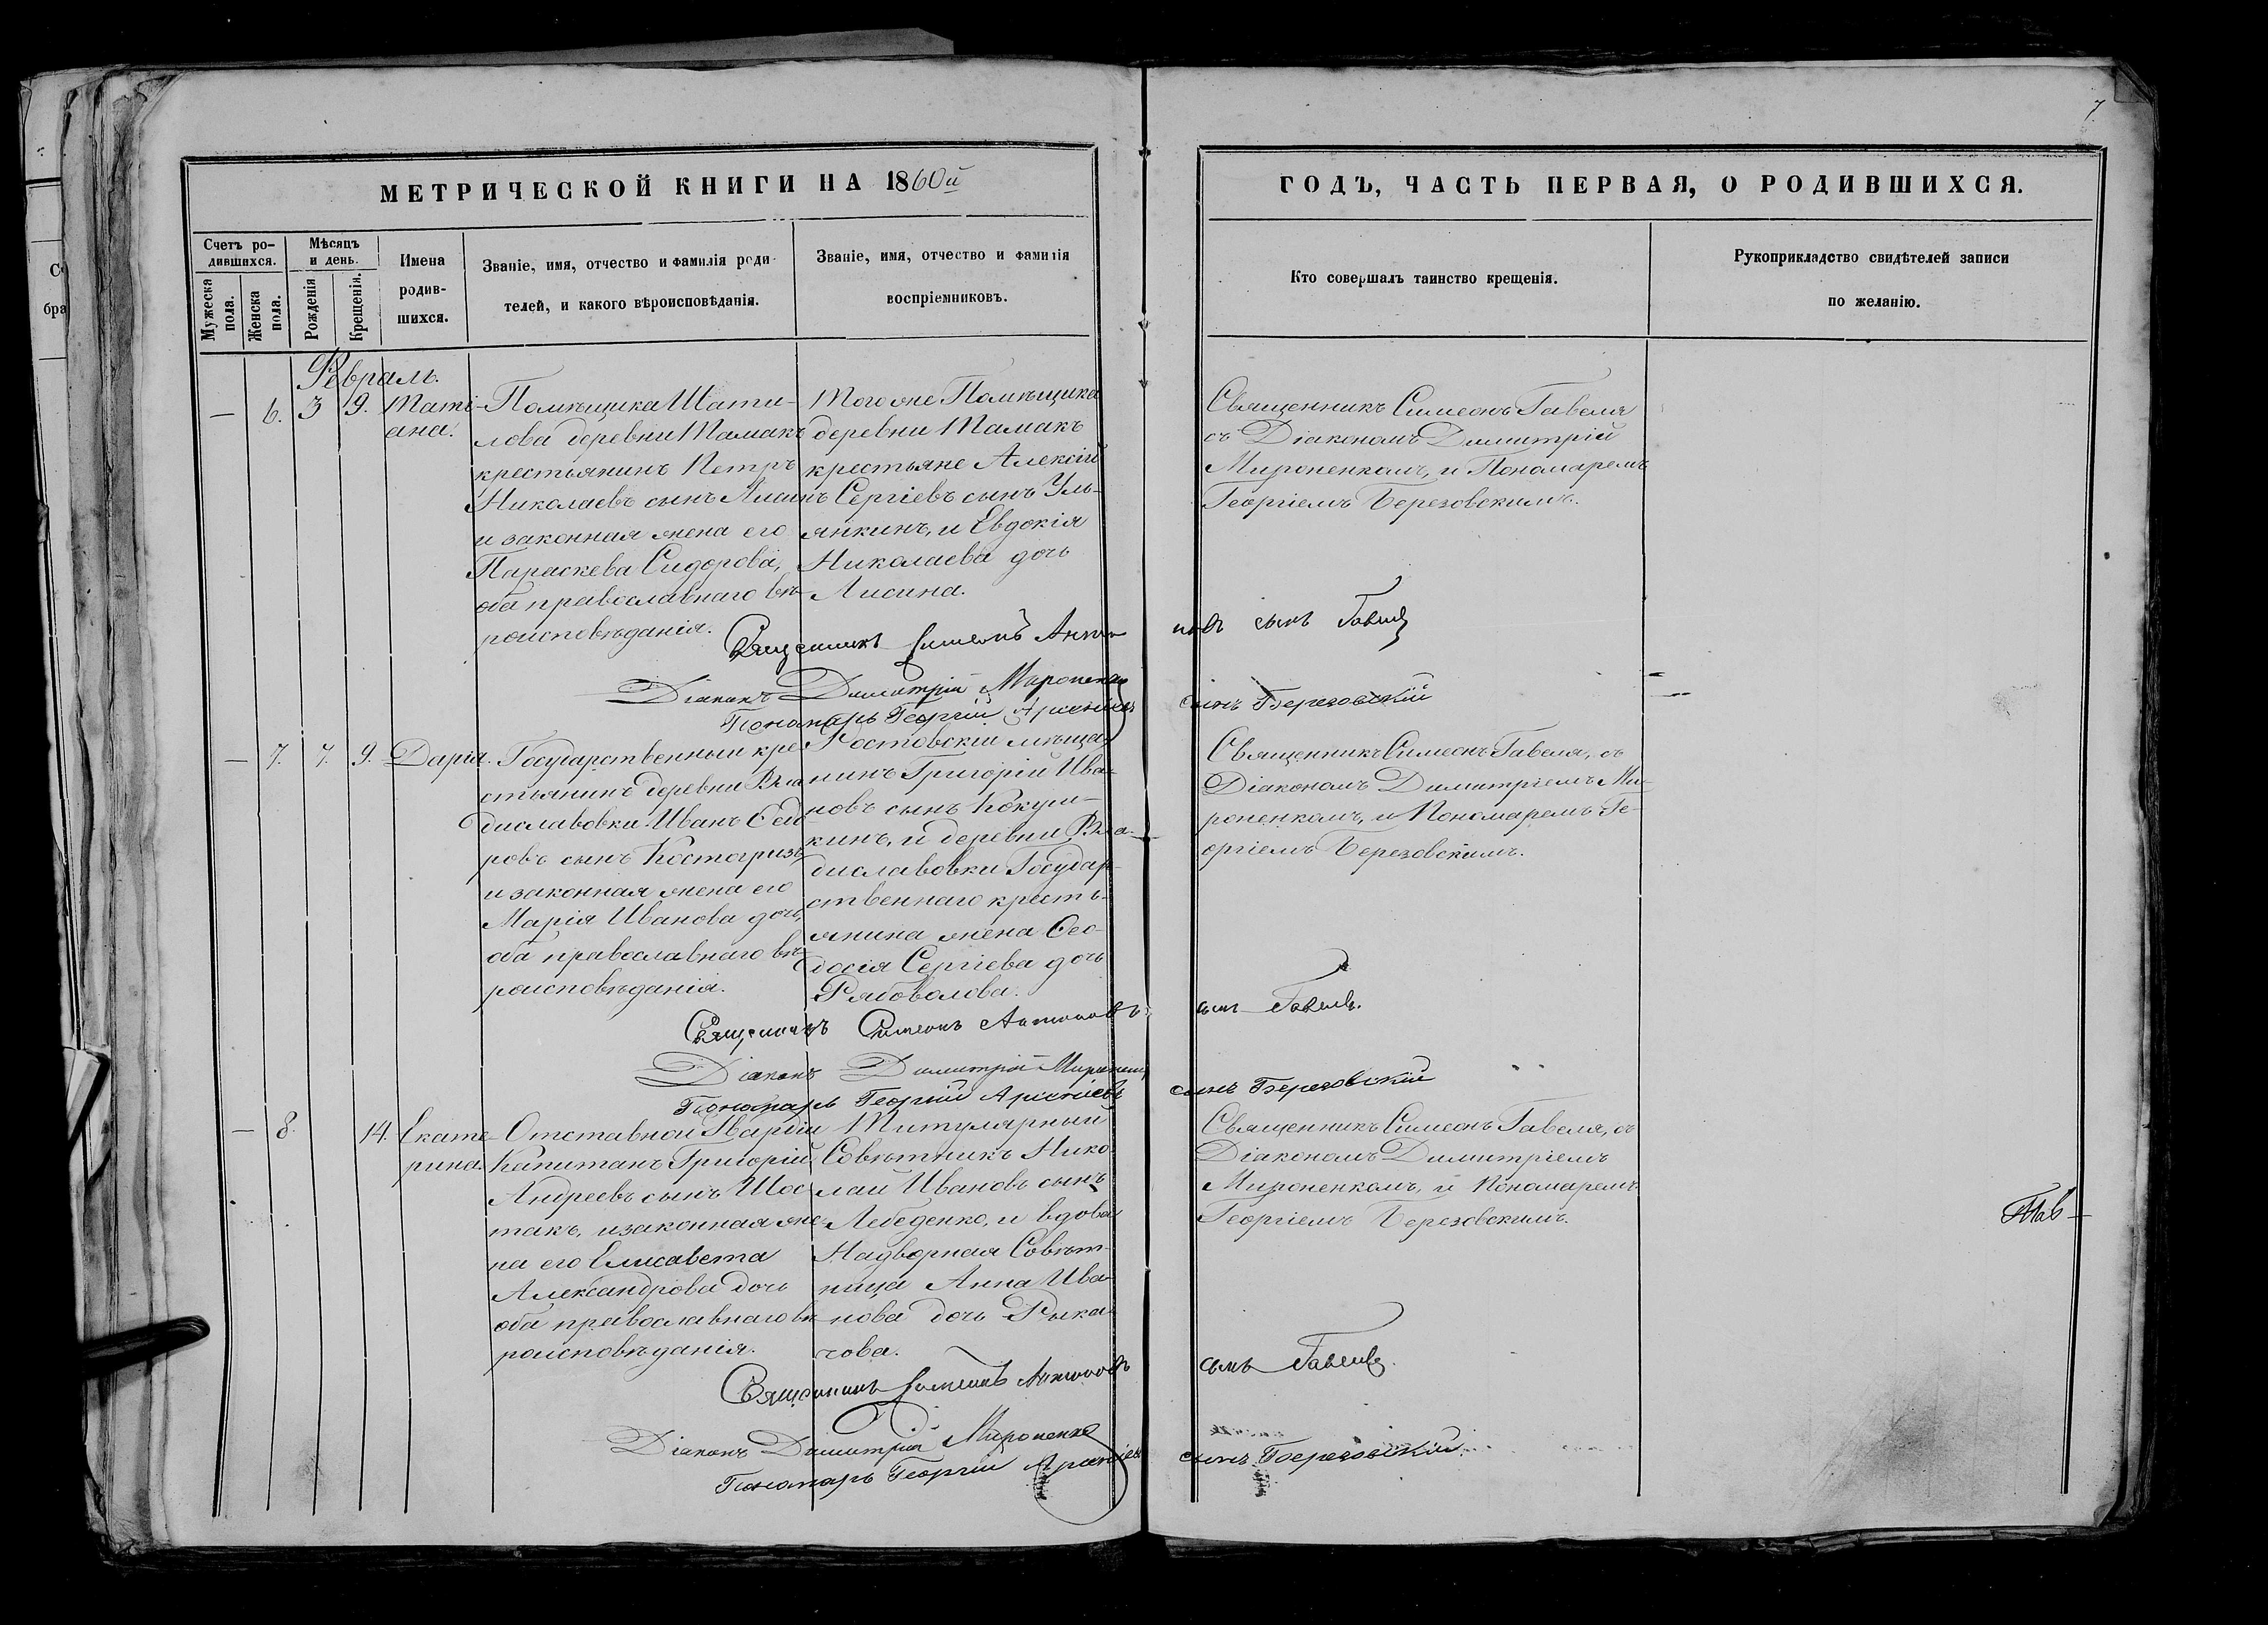 7
МЕТРИЧЕСКОЙ КНИГИ НА 1860й
ГОДЪ, ЧАСТЬ ПЕРВАЯ, О РОДИВШИХСЯ.
Счетъ ро-
дившихся.
Мужеска
пола.
Женска
пола.
Мѣсяцъ
и день.
Рожденія
Крещенія.
Имена
родив-
шихся.
Званіе, имя, отчество и фамилія роди-
телей, и какого вѣроисповѣданія.
Званіе, имя, отчество и фамилія
воспріемниковъ.
Кто совершалъ таинство крещенія.
Рукоприкладство свидѣтелей записи
по желанію.
Февраль.
— 6. 3 9. Таті-
ана.
Помѣщика Шати-
лова деревни Тамакъ
крестьянинъ Петръ
Николаевъ сынъ Лисинъ
и законная жена его
Параскева Сидорова,
оба православнаго вѣ-
роисповѣданія.
Того же Помѣщика
деревни Тамакъ
крестьяне Алексій
Сергіевъ сынъ Уль-
янкинъ, и Евдокія
Николаева дочь
Лисина.
Священникъ Симеонъ Гавеля
съ Діакономъ Димитрій
Мироненкомъ, и Пономаремъ
Георгіемъ Березовскимъ.
Священникъ Симеонъ Антоновъ сынъ Гавеля
Діаконъ Димитрій Мироненко
Пономарь Георгій Арсеніевъ сынъ Березовскій
— 7. 7. 9. Дарія.
Государственный кре-
стьянинъ деревни Вла-
диславовки Иванъ Ѳедо
ровъ сынъ Костогризъ
и законная жена его
Марія Иванова дочь,
оба православнаго вѣ-
роисповѣданія.
Ростовскій мѣща-
нинъ Григорій Ива-
новъ сынъ Кокуш-
кинъ, и деревни Вла-
диславовки Государ-
ственнаго кресть-
янина жена Ѳео-
досія Сергіева дочь
Рябоволова.
Священникъ Симеонъ Гавеля, съ
Діакономъ Димитріемъ Ми-
роненкомъ, и Пономаремъ Ге-
оргіемъ Березовскимъ.
Священникъ Симеонъ Антоновъ сынъ Гавеля.
Діаконъ Димитрій Мироненко
Пономарь Георгій Арсеніевъ сынъ Березовскій
— 8. 14. Екате-
рина
Отставной Гвардіи
Капитанъ Григорій
Андреевъ сынъ Шос-
такъ, и законная же-
на его Елисавета
Александрова дочь
оба православнаго вѣ-
роисповѣданія.
Титулярный
Совѣтникъ Нико
лай Ивановъ сынъ
Лебеденко, и вдова
Надворная Совѣт-
ница Анна Ива-
нова дочь Рыка-
чова.
Священникъ Симеонъ Гавеля, съ
Діакономъ Димитріемъ
Мироненкомъ, и Пономаремъ
Георгіемъ Березовскимъ.
Тав-
Священникъ Симеонъ Антоновъ сынъ Гавеля.
Діаконъ Димитрій Мироненко
Пономарь Георгій Арсеніевъ сынъ Березовскій.